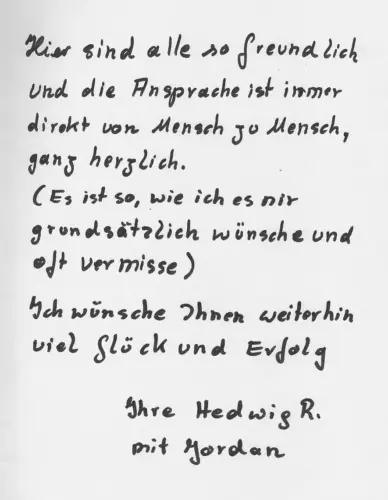 Hier sind alle so freundlich
und die Ansprache ist immer
direkt von Mensch zu Mensch,
ganz herzlich.
(Es ist so, wie ich es mir
grundsätzlich wünsche und
oft vermisse)
Ich wünsche Ihnen weiterhin
viel Glück und Erfolg
Ihre Hedwig R.
mit Yordan